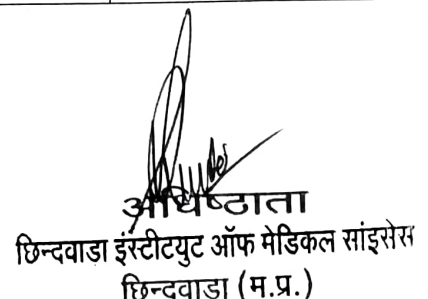 अधिष्ठाता
छिन्दवाडा इंस्टीटयुट ऑफ मेडिकल सांइसेस
छिन्दवाडा (म.प्र.)